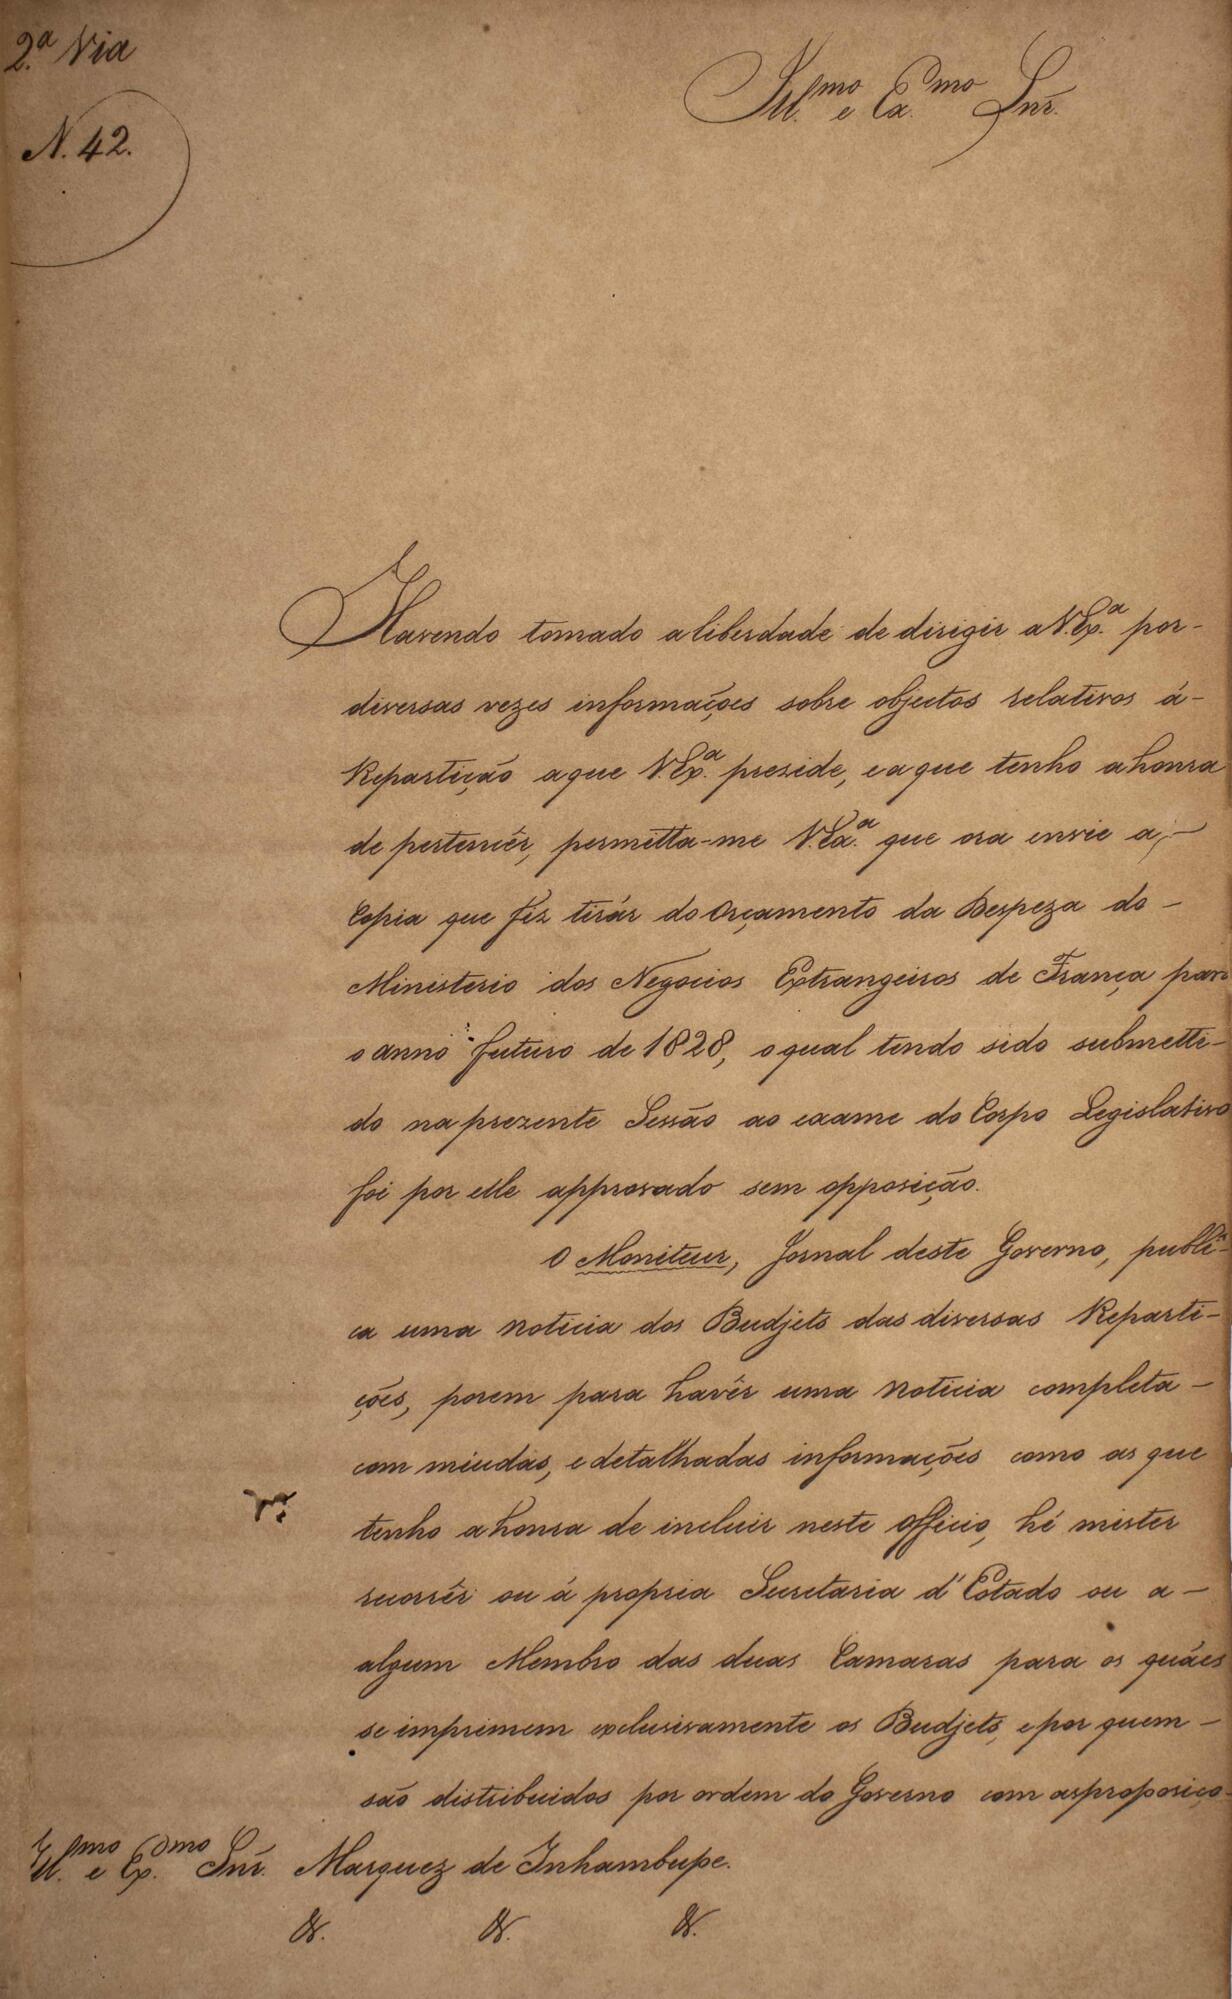 2.ª Via
N. 42.
Ill.mo e Ex.mo Snr.
Havendo tomado a liberdade de dirigir a V.Ex.ª por-
diversas vezes informações sobre objectos relativos á-
Repartição a que V.Ex.ª preside, e a que tenho a honra
de pertencêr, permitta-me V.Ex.ª que ora envie a,-
Copia que fiz tirár do Orçamento da Despeza do-
Ministerio dos Negocios Extrangeiros de França para
o anno futuro de 1828, o qual tendo sido submetti-
do na prezente Sessão ao exame do Corpo Legislativo
foi por elle approvado sem opposição.
O Moniteur, Jornal deste Governo, publi-
ca uma noticia dos Budjets das diversas Reparti-
ções, porem para havêr uma noticia completa-
com miudas, e detalhadas informações como as que
tenho a honra de incluir neste officio, hé mister
recorrêr ou á propria Secretaria d'Estado ou a-
algum Membro das duas Camaras para os quáes
se imprimem exclusivamente os Budjets, e por quem-
são distribuidos por ordem do Governo com as proposiço-
Ill.mo e Ex.mo Snr. Marquez de Inhambupe.
&. &. &.